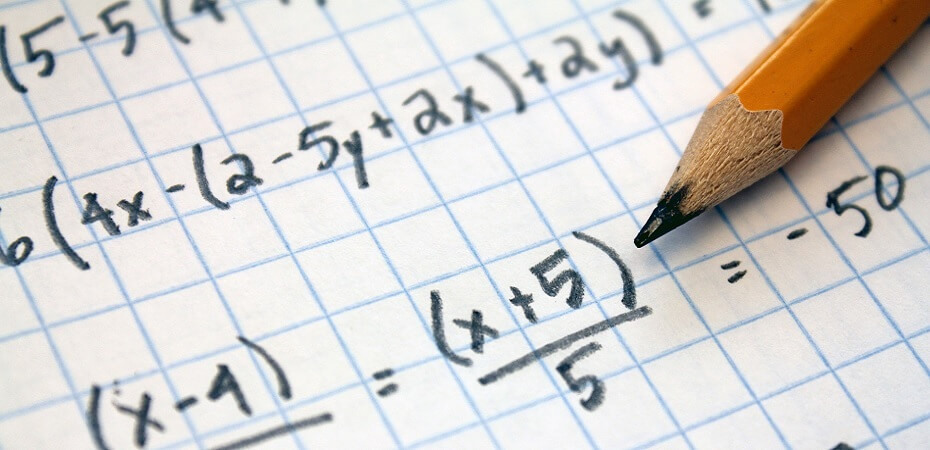 (5-5(4
6(4x-(2-5y+2x)+2y)
= -50
(x-4) = (x+5)/5